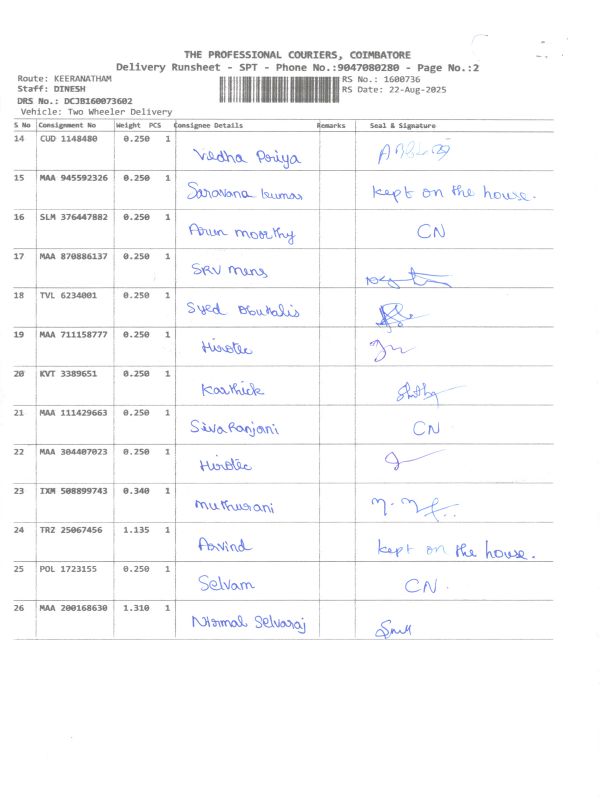 THE PROFESSIONAL COURIERS, COIMBATORE
Delivery Runsheet - SPT - Phone No.:9047080280 - Page No.:2
Route: KEERANATHAM RS No.: 1600736
Staff: DINESH RS Date: 22-Aug-2025
DRS No.: DCJB160073602
Vehicle: Two Wheeler Delivery
S No Consignment No Weight PCS Consignee Details Remarks Seal & Signature
14 CUD 1148480 0.250 1 Vedha Poriya
15 MAA 945592326 0.250 1 Saravana kumar kept on the house.
16 SLM 376447882 0.250 1 Arun moorthy CN
17 MAA 870886137 0.250 1 SRV mens
18 TVL 6234001 0.250 1 Syed
19 MAA 711158777 0.250 1 Hirotec
20 KVT 3389651 0.250 1 Karthick
21 MAA 111429663 0.250 1 SivaRanjani CN
22 MAA 304407023 0.250 1 Hirotec
23 IXM 508899743 0.340 1 muthurani
24 TRZ 25067456 1.135 1 Arvind kept on the house.
25 POL 1723155 0.250 1 Selvam CN.
26 MAA 200168630 1.310 1 Nirmal Selvaraj